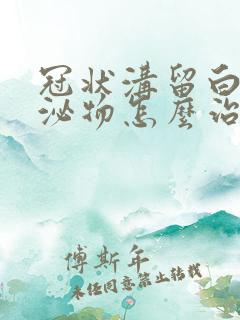 冠状溝留白
泌物怎麼治
傅斯年
未经同意禁止转载